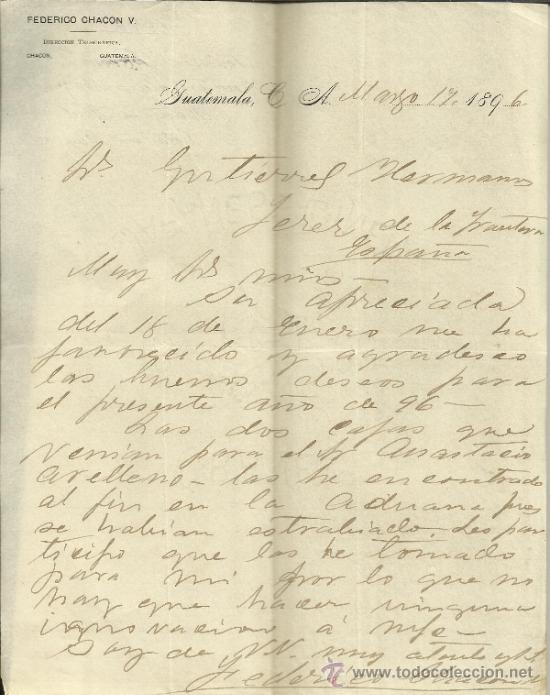 FEDERICO CHACON V.
DIRECCION TELEGRAFICA,
CHACON, GUATEMALA.
Guatemala, C. A. Marzo 17 1896
Srs Gutierrez Hermanos
Jerez de la Frontera
España
Muy Srs mios—
Su apreciada
del 18 de Enero me ha
favorecido y agradesco
los buenos deseos para
el presente año de 96—
Las dos cajas que
venian para el Sr Anastacio
Arelleno— las he encontrado
al fin en la Aduana pues
se habian estrabiado. Les par
ticipo que las he tomado
para mi por lo que no
hay que hacer ninguna
innovacion á
Soy de VV. muy atento
Federico Chacon
www.todocoleccion.net